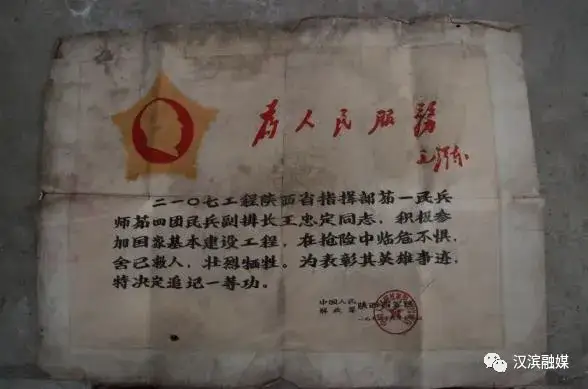 为人民服务
毛泽东
二一〇七工程陕西省指挥部第一民兵
师第四团民兵副排长王忠定同志，积极参
加国家基本建设工程，在抢险中临危不惧，
舍己救人，壮烈牺牲。为表彰其英雄事迹，
特决定追记一等功。
中国人民
解放军
陕西省军区
汉滨融媒